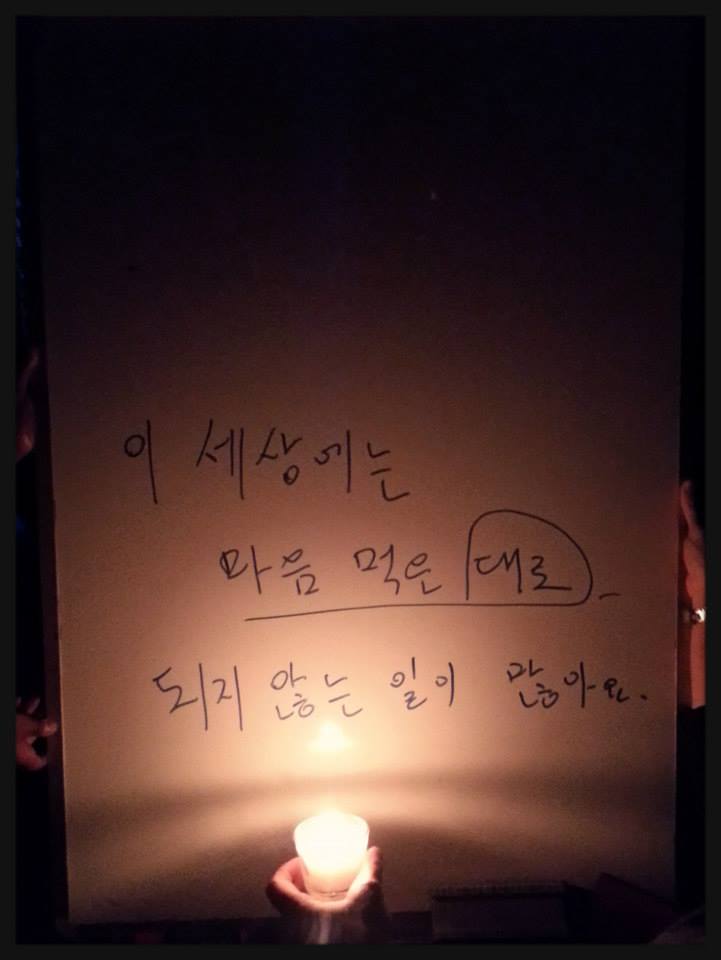 이 세상에는
마음 먹은 대로
되지 않는 일이 많아요.